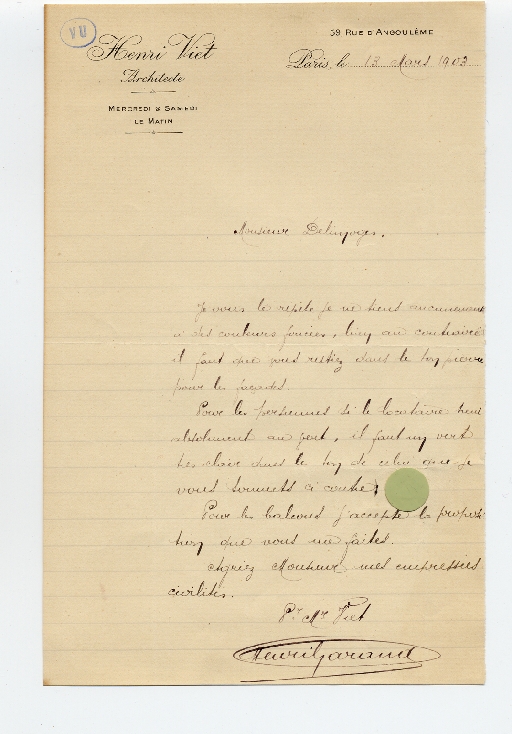 VU
Henri Viet
Architecte
MERCREDI & SAMEDI
LE MATIN
59 RUE D'ANGOULÊME
Paris, le 13 Mars 1903
Monsieur
Je vous le répète je ne tiens aucunement
à des couleurs foncées, bien au contraire
il faut que vous restiez dans le ton pierre
pour les façades.
Pour les persiennes si le locataire tient
absolument au vert, il faut un vert
très claire dans le ton de celui que je
vous soumets ci contre,
Pour les balcons j'accepte la proposi
tion que vous me faites.
Agréez Monsieur mes empressées
civilités.
Pr Mr Viet